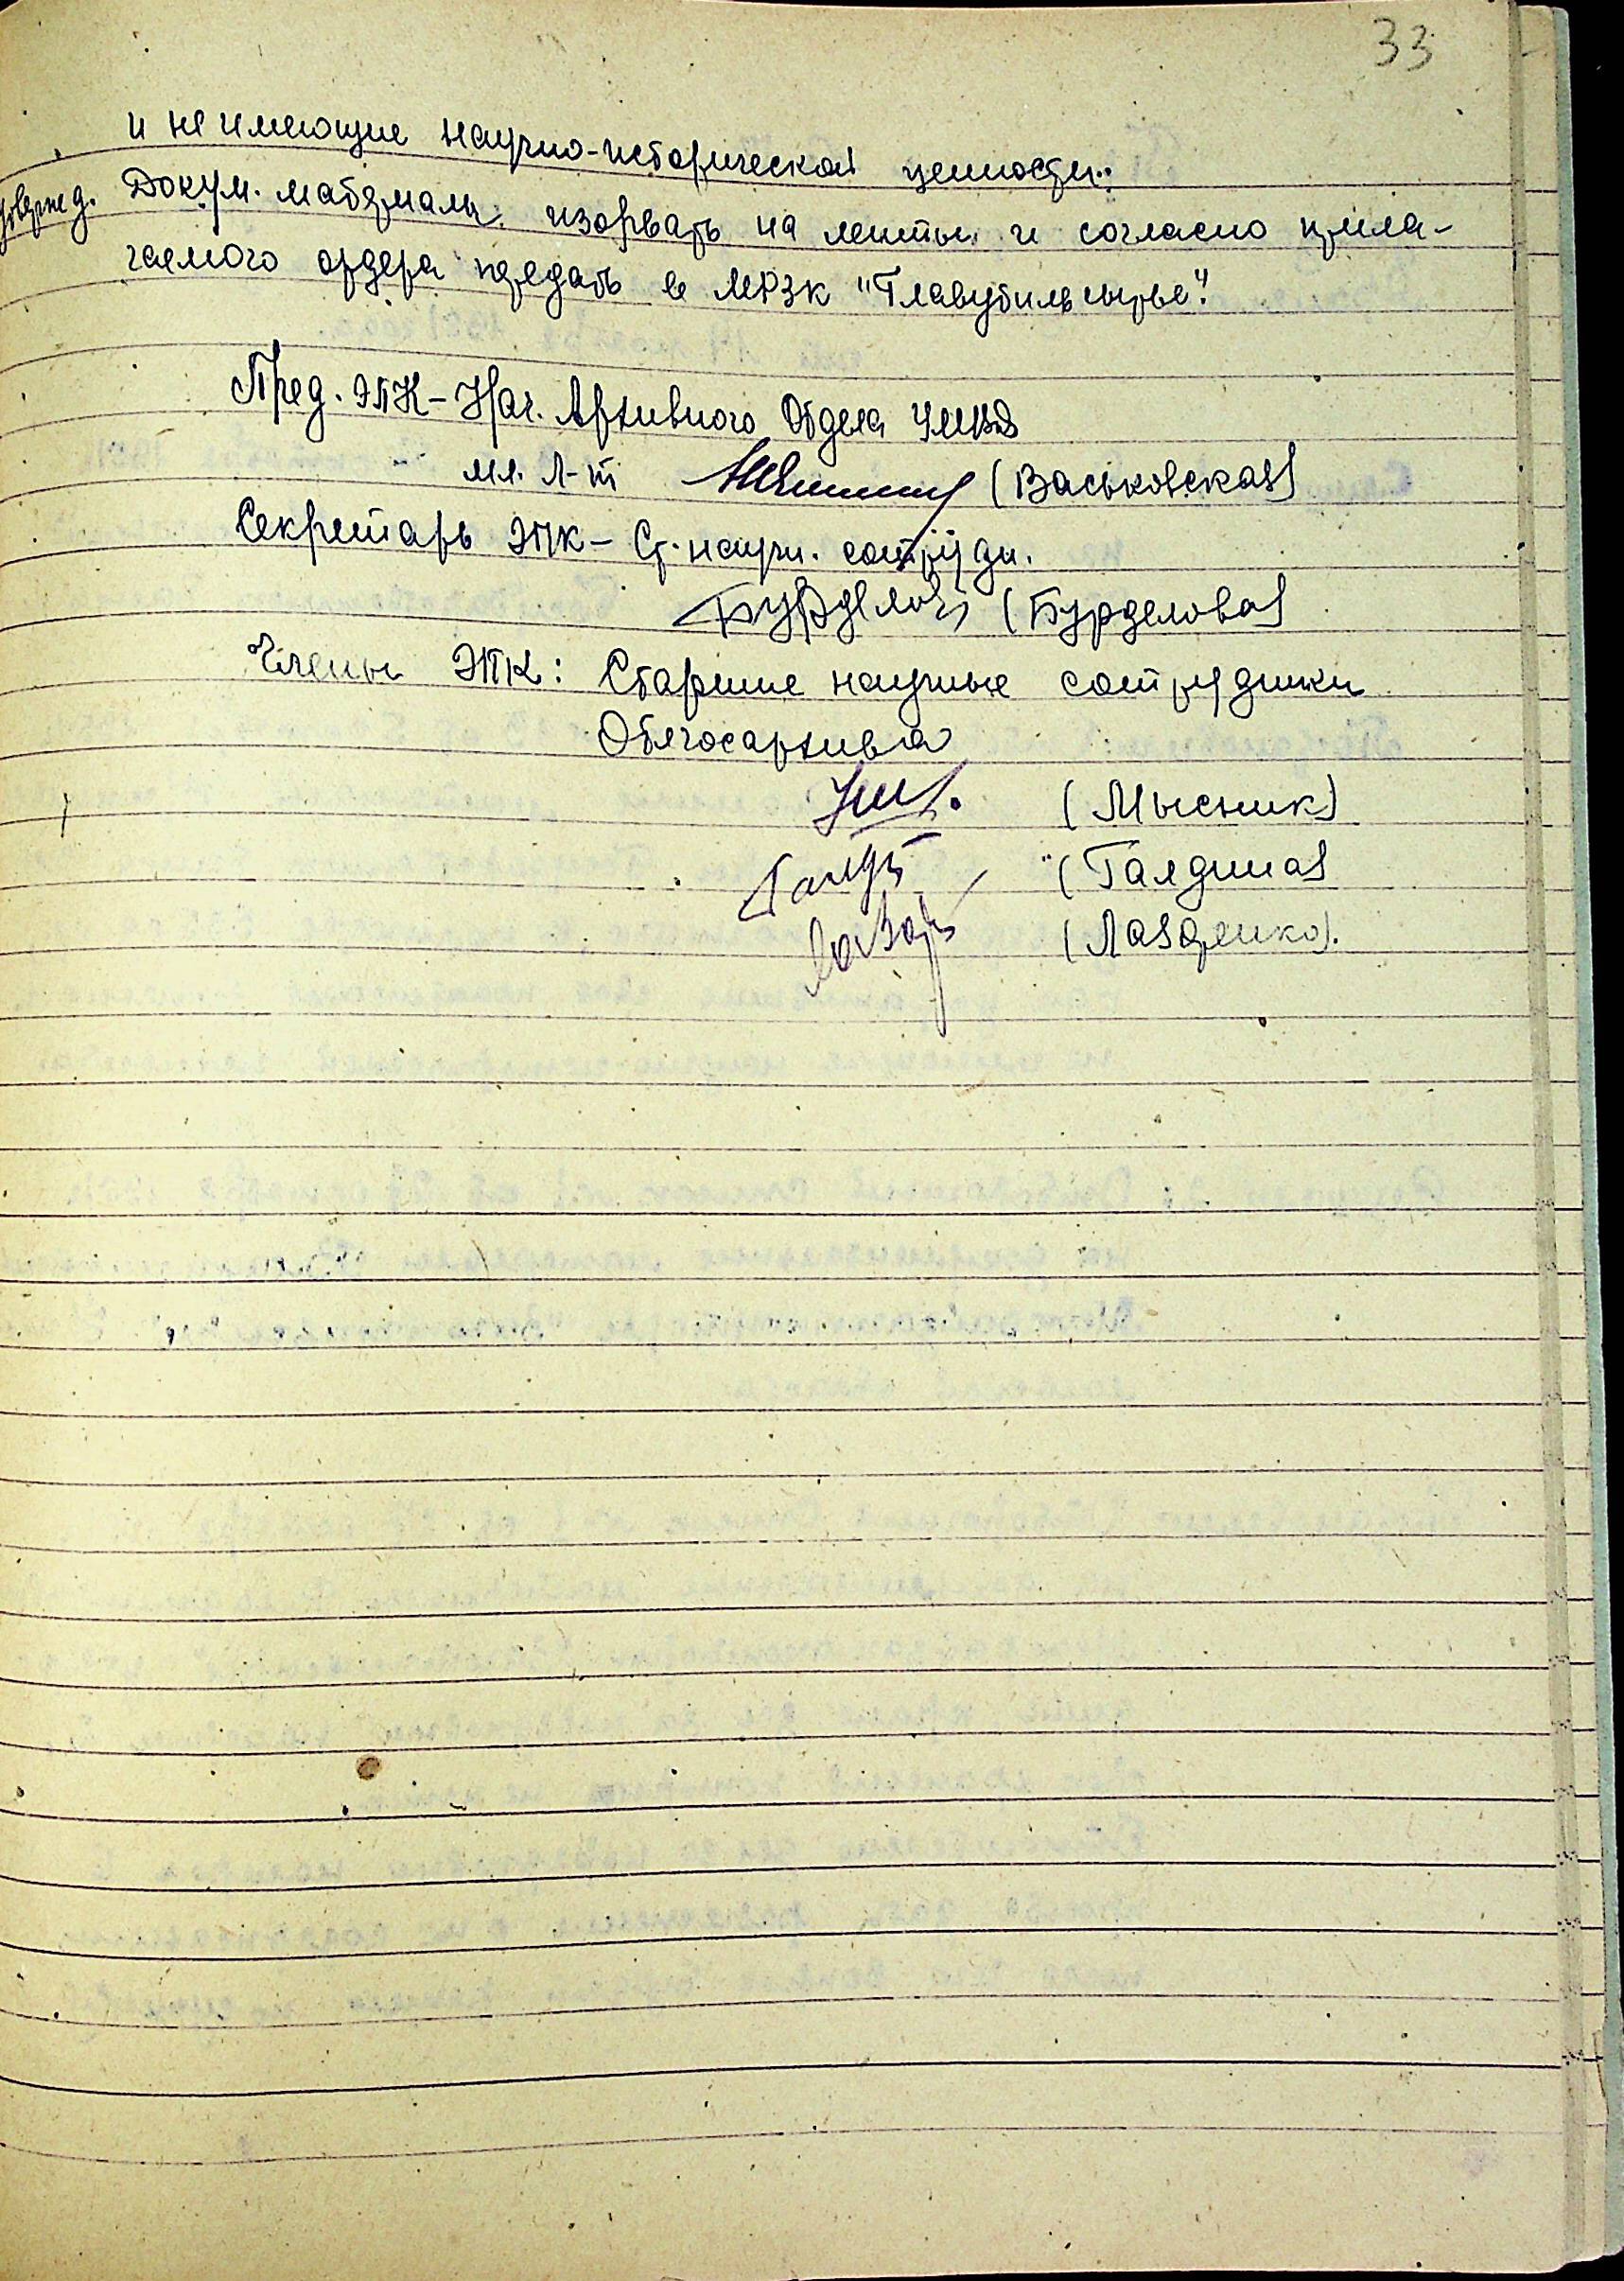 33
и не имеющие научно-исторической ценности.
Докум. материалы изорвать на ленты и согласно прила-
гаемого ордера передать в МРЗК "Главутильсырье".
Пред. ЭПК – Нач. Архивного Отдела УМВД
мл. л-т (Васьковская)
Секретарь ЭПК – Ст. научн. сотрудн.
Бурделова (Бурделова)
Члены ЭПК: Старшие научные сотрудники
Облгосархива
(Мысник)
(Галдина)
(Лазаренко).